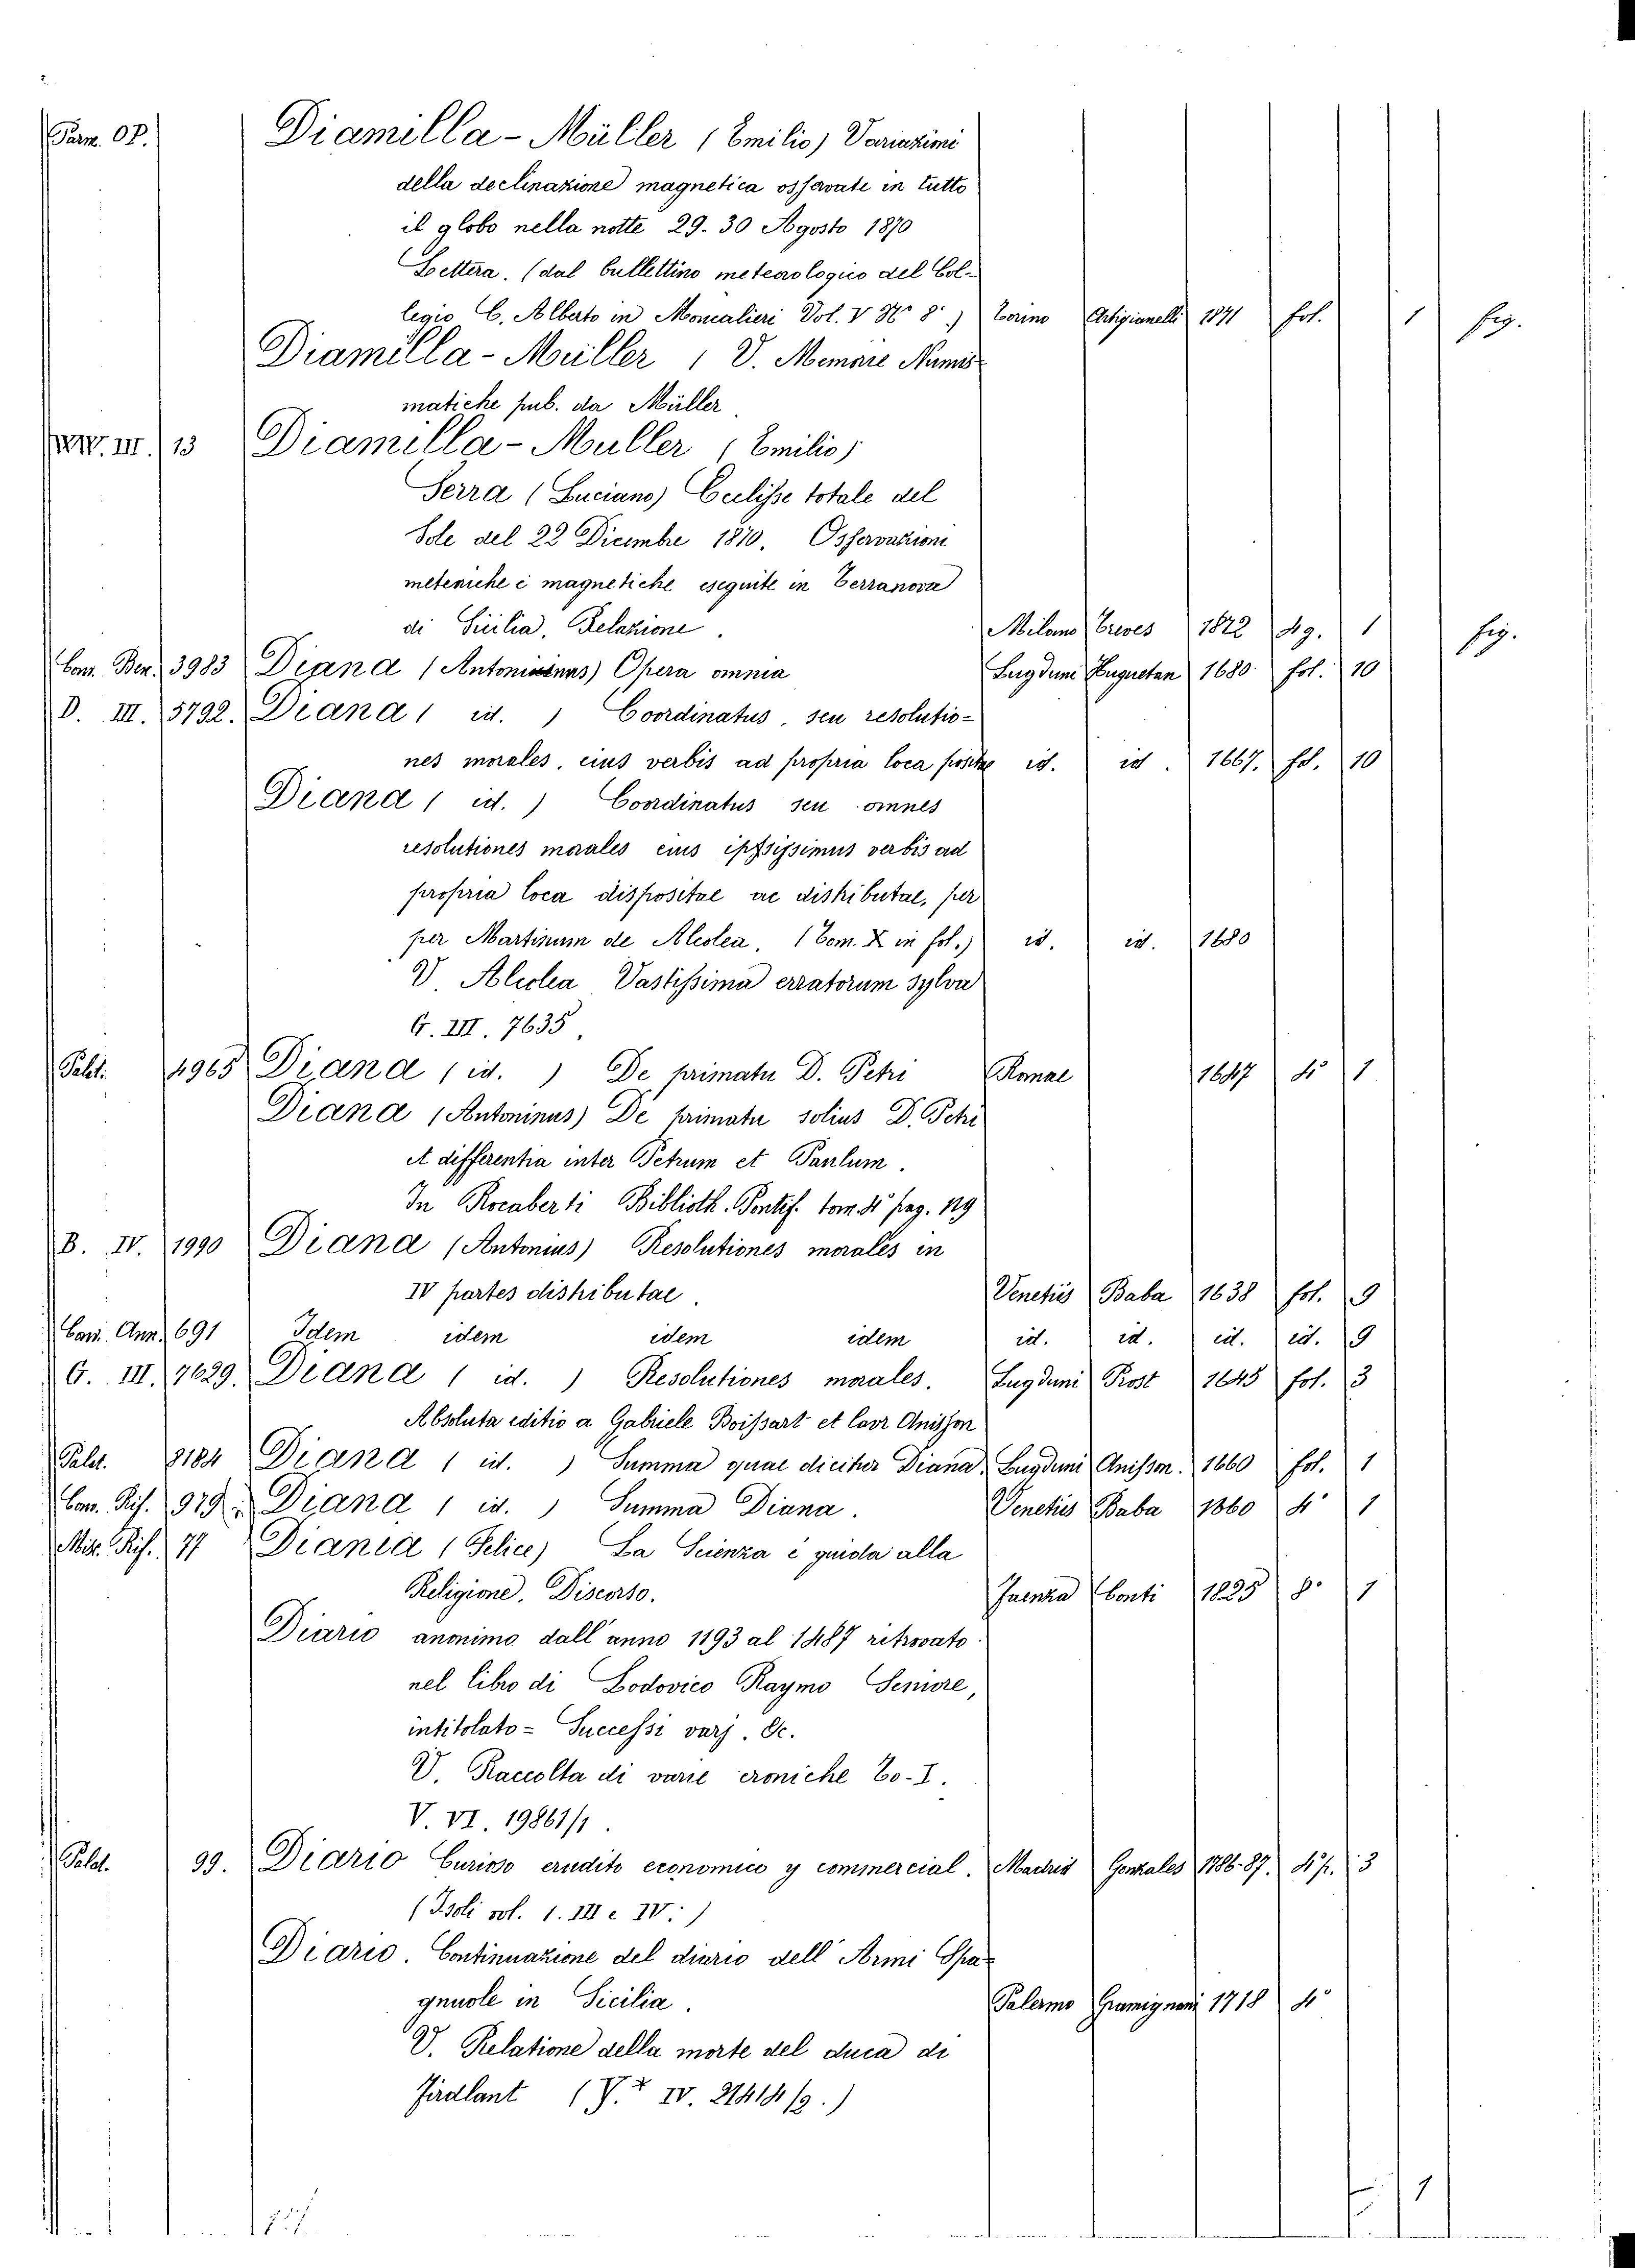 Pam. OP. Diamilla-Müller (Emilio) Variazioni
della declinazione magnetica osservate in tutto
il globo nella notte 29-30 Agosto 1870
Lettera. (dal bullettino meteorologico del Col-
legio C. Alberto in Moncalieri Vol. V N.º 8.) Torino Artigianelli 1871 fol. 1 fig.
Diamilla-Müller (V. Memorie Numis-
matiche pub. da Müller
XXIV. III. 13 Diamilla-Muller (Emilio)
Serra (Luciano) Eclisse totale del
Sole del 22 Dicembre 1870. Osservazioni
meteriche e magnetiche eseguite in Terranova
di Sicilia. Relazione. Milano Treves 1872 4g. 1 fig.
Com. Ben. 3983 Diana (Antoninus) Opera omnia Lugduni Huguetan 1680 fol. 10
D. III. 5792. Diana ( id. ) Coordinatus, seu resolutio-
nes morales, eius verbis ad propria loca positæ id. id. 1667. fol. 10
Diana ( id. ) Coordinatus seu omnes
resolutiones morales eius ipsissimus verbis ad
propria loca dispositae ac distributae, per
per Martinum de Alcolea. (Tom. X in fol.) id. id. 1680
V. Alcolea Vastissima erratorum sylva
G. III. 7635.
Palat. 4965 Diana ( id. ) De primatu D. Petri Romae 1647 4º 1
Diana (Antoninus) De primatu solius D. Petri
et differentia inter Petrum et Paulum.
In Rocaberti Biblioth. Pontif. tom. 4º pag. 119
B. IV. 1990 Diana (Antonius) Resolutiones morales in
IV partes distributae. Venetiis Baba 1638 fol. 9
Com. Ann. 691 Idem idem idem idem id. id. id. id. 9
G. III. 7629. Diana ( id. ) Resolutiones morales. Lugduni Prost 1645 fol. 3
Absoluta editio a Gabriele Boissart et Laur Anisson
Palat. 8184 Diana ( id. ) Summa quae dicitur Diana. Lugduni Anisson. 1660 fol. 1
Com. Rif. 979. Diana ( id. ) Summa Diana. Venetiis Baba 1860 4º 1
Misc. Rif. 77 Diania (Felice) La Scienza è guida alla
Religione. Discorso. Faenza Conti 1825 8º 1
Diario anonimo dall'anno 1193 al 1487 ritrovato
nel libro di Lodovico Raymo Seniore,
intitolato = Successi varj. &c.
V. Raccolta di varie croniche To-I.
V. VI. 19861/1.
Palat. 99. Diario Curioso erudito economico y commercial. Madrid Gonzales 1786-87. 4º p. 3
(Isoli vol. 1. III e IV.)
Diario. Continuazione del diario dell'Armi Spa-
gnuole in Sicilia. Palermo Gramignani 1718 4º
V. Relatione della morte del duca di
Firdlant ( IV. 21414/9.)
1